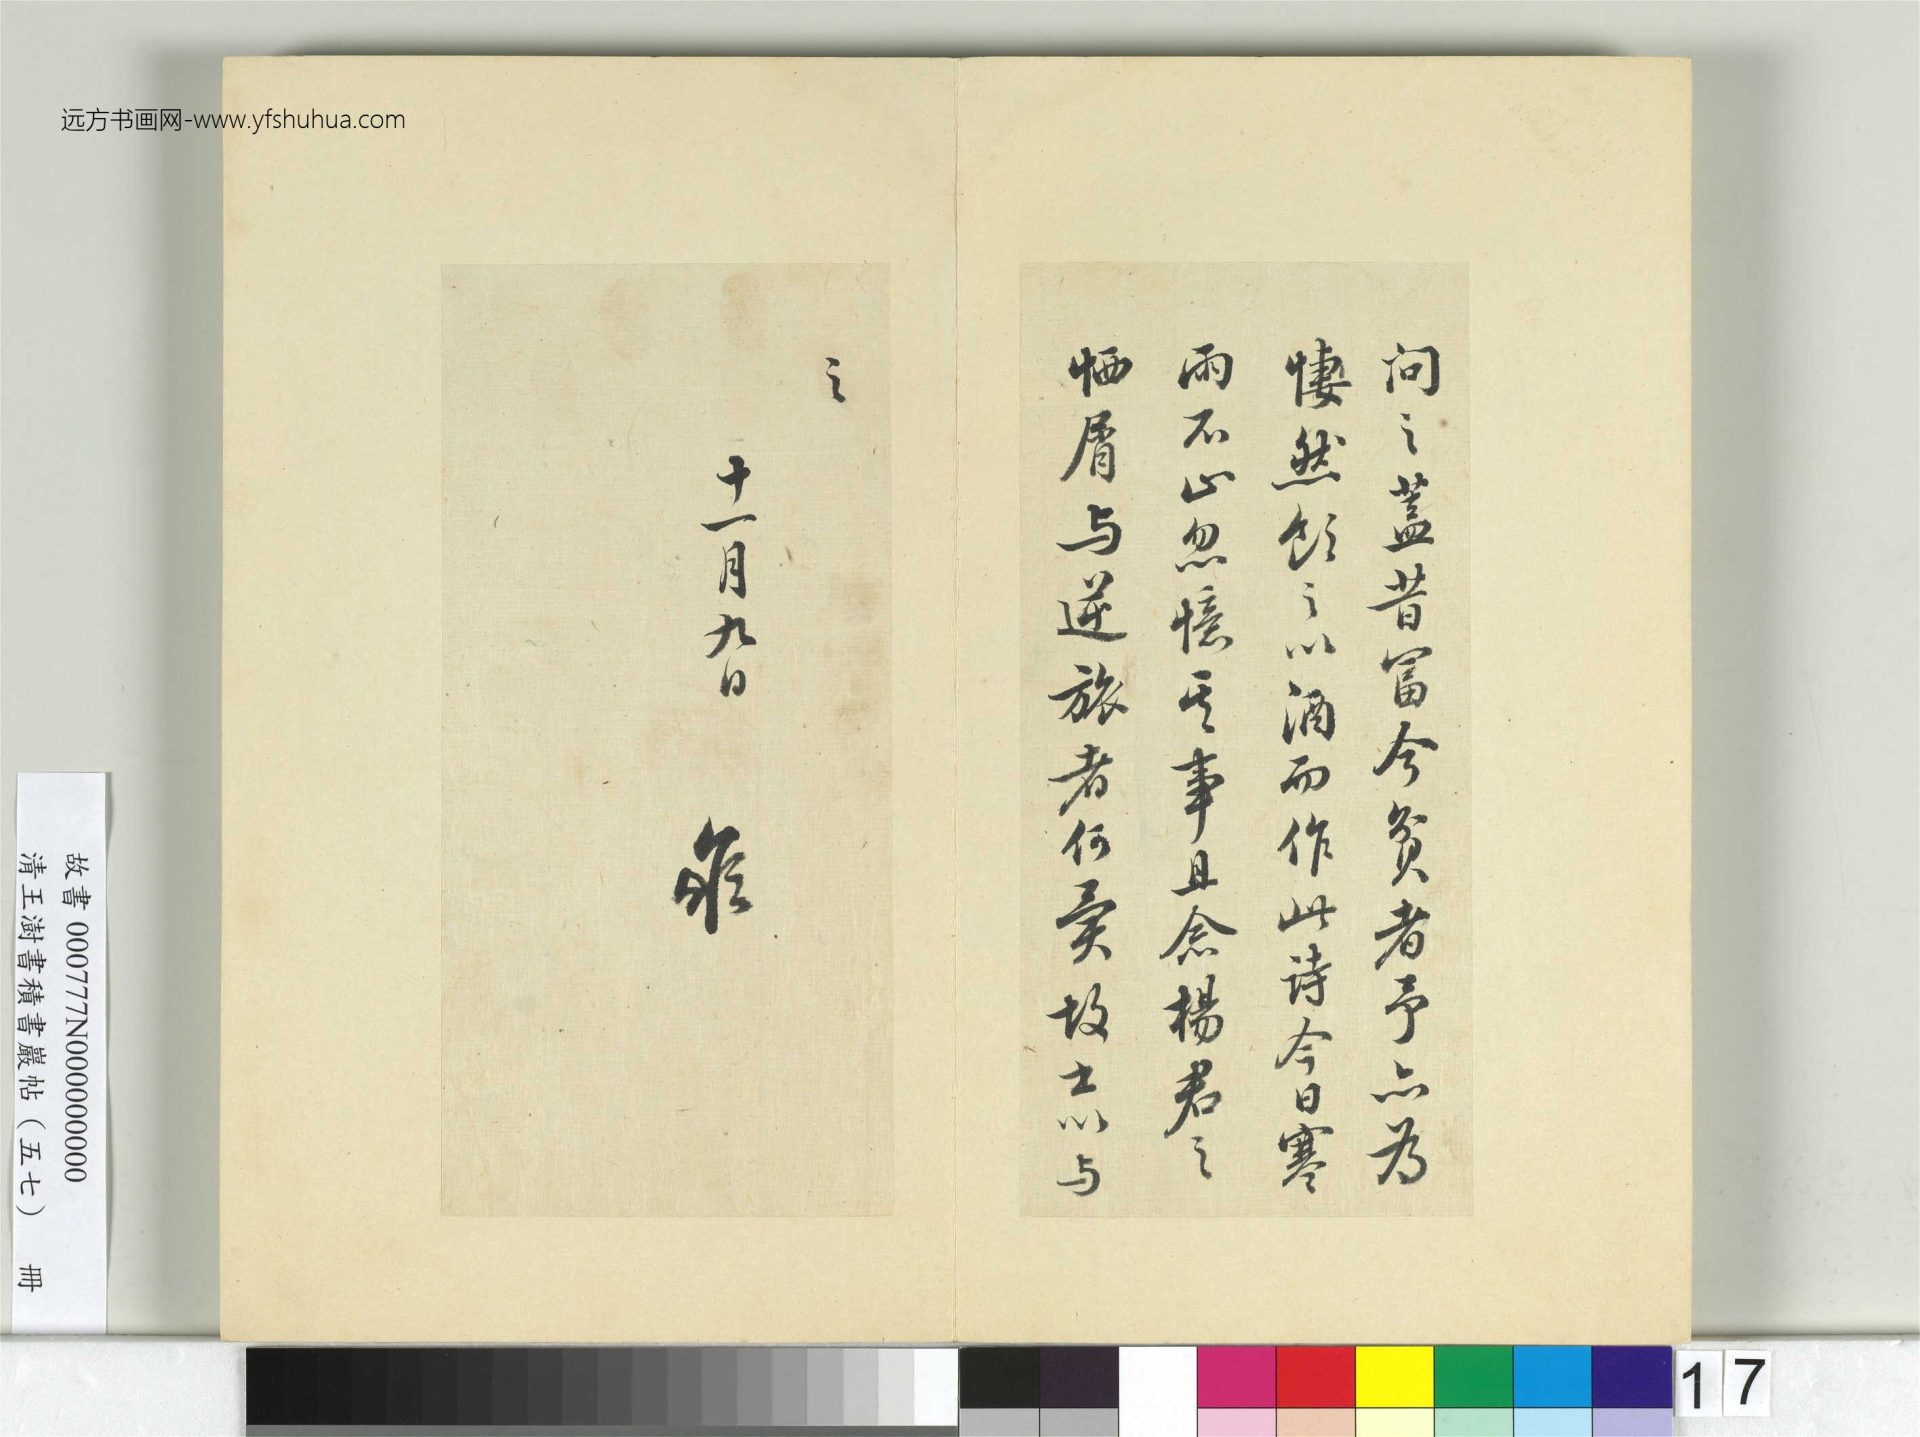 远方书画网-www.yfshuhua.com
问之蓋昔冨今貧者予亦为
悽然飲之以酒而作此诗今日寒
雨不止忽憶其事且念楊君之
恓屑与逆旅者何異故書以与
之
十一月九日
故書000777N000000000
清王澍書積書巖帖（五七） 冊
17